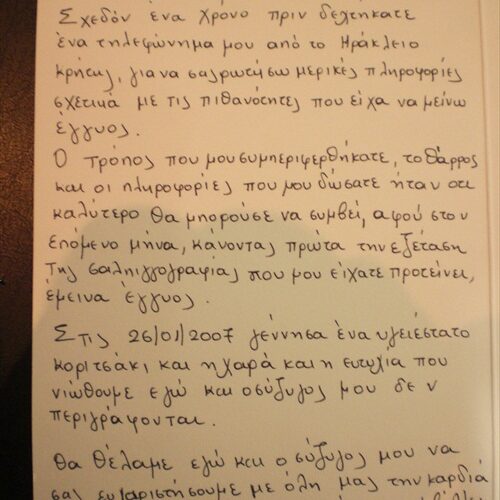 Σχεδόν ένα χρόνο πριν δεχτήκατε
ένα τηλεφώνημα μου από το Ηράκλειο
Κρήτης, για να σας ρωτήσω μερικές πληροφορίες
σχετικά με τις πιθανότητες που είχα να μείνω
έγγυος.
Ο τρόπος που μου συμπεριφερθήκατε, το θάρρος
και οι πληροφορίες που μου δώσατε ήταν οτι
καλύτερο θα μπορούσε να συμβεί, αφού στον
επόμενο μήνα, κάνοντας πρώτα την εξέταση
της σαλπιγγογραφίας που μου είχατε προτείνει,
έμεινα έγγυος.
Στις 26/01/2007 γέννησα ένα υγειέστατο
κοριτσάκι και η χαρά και η ευτυχία που
νιώθουμε εγώ και ο σύζυγος μου δεν
περιγράφονται.
Θα θέλαμε εγώ και ο σύζυγος μου να
σας ευχαριστήσουμε με όλη μας την καρδιά